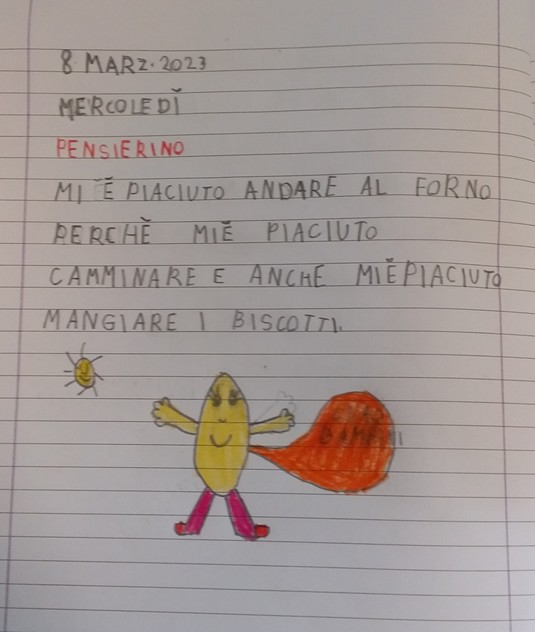 8 MARZ. 2023
MERCOLEDĬ
PENSIERINO
MI Ĕ PIACIUTO ANDARE AL FORNO
PERCHĔ MIĔ PIACIUTO
CAMMINARE E ANCHE MIĔPIACIUTO
MANGIARE I BISCOTTI.